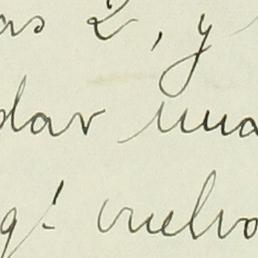 as 2, y
dar una
g! vuelvo